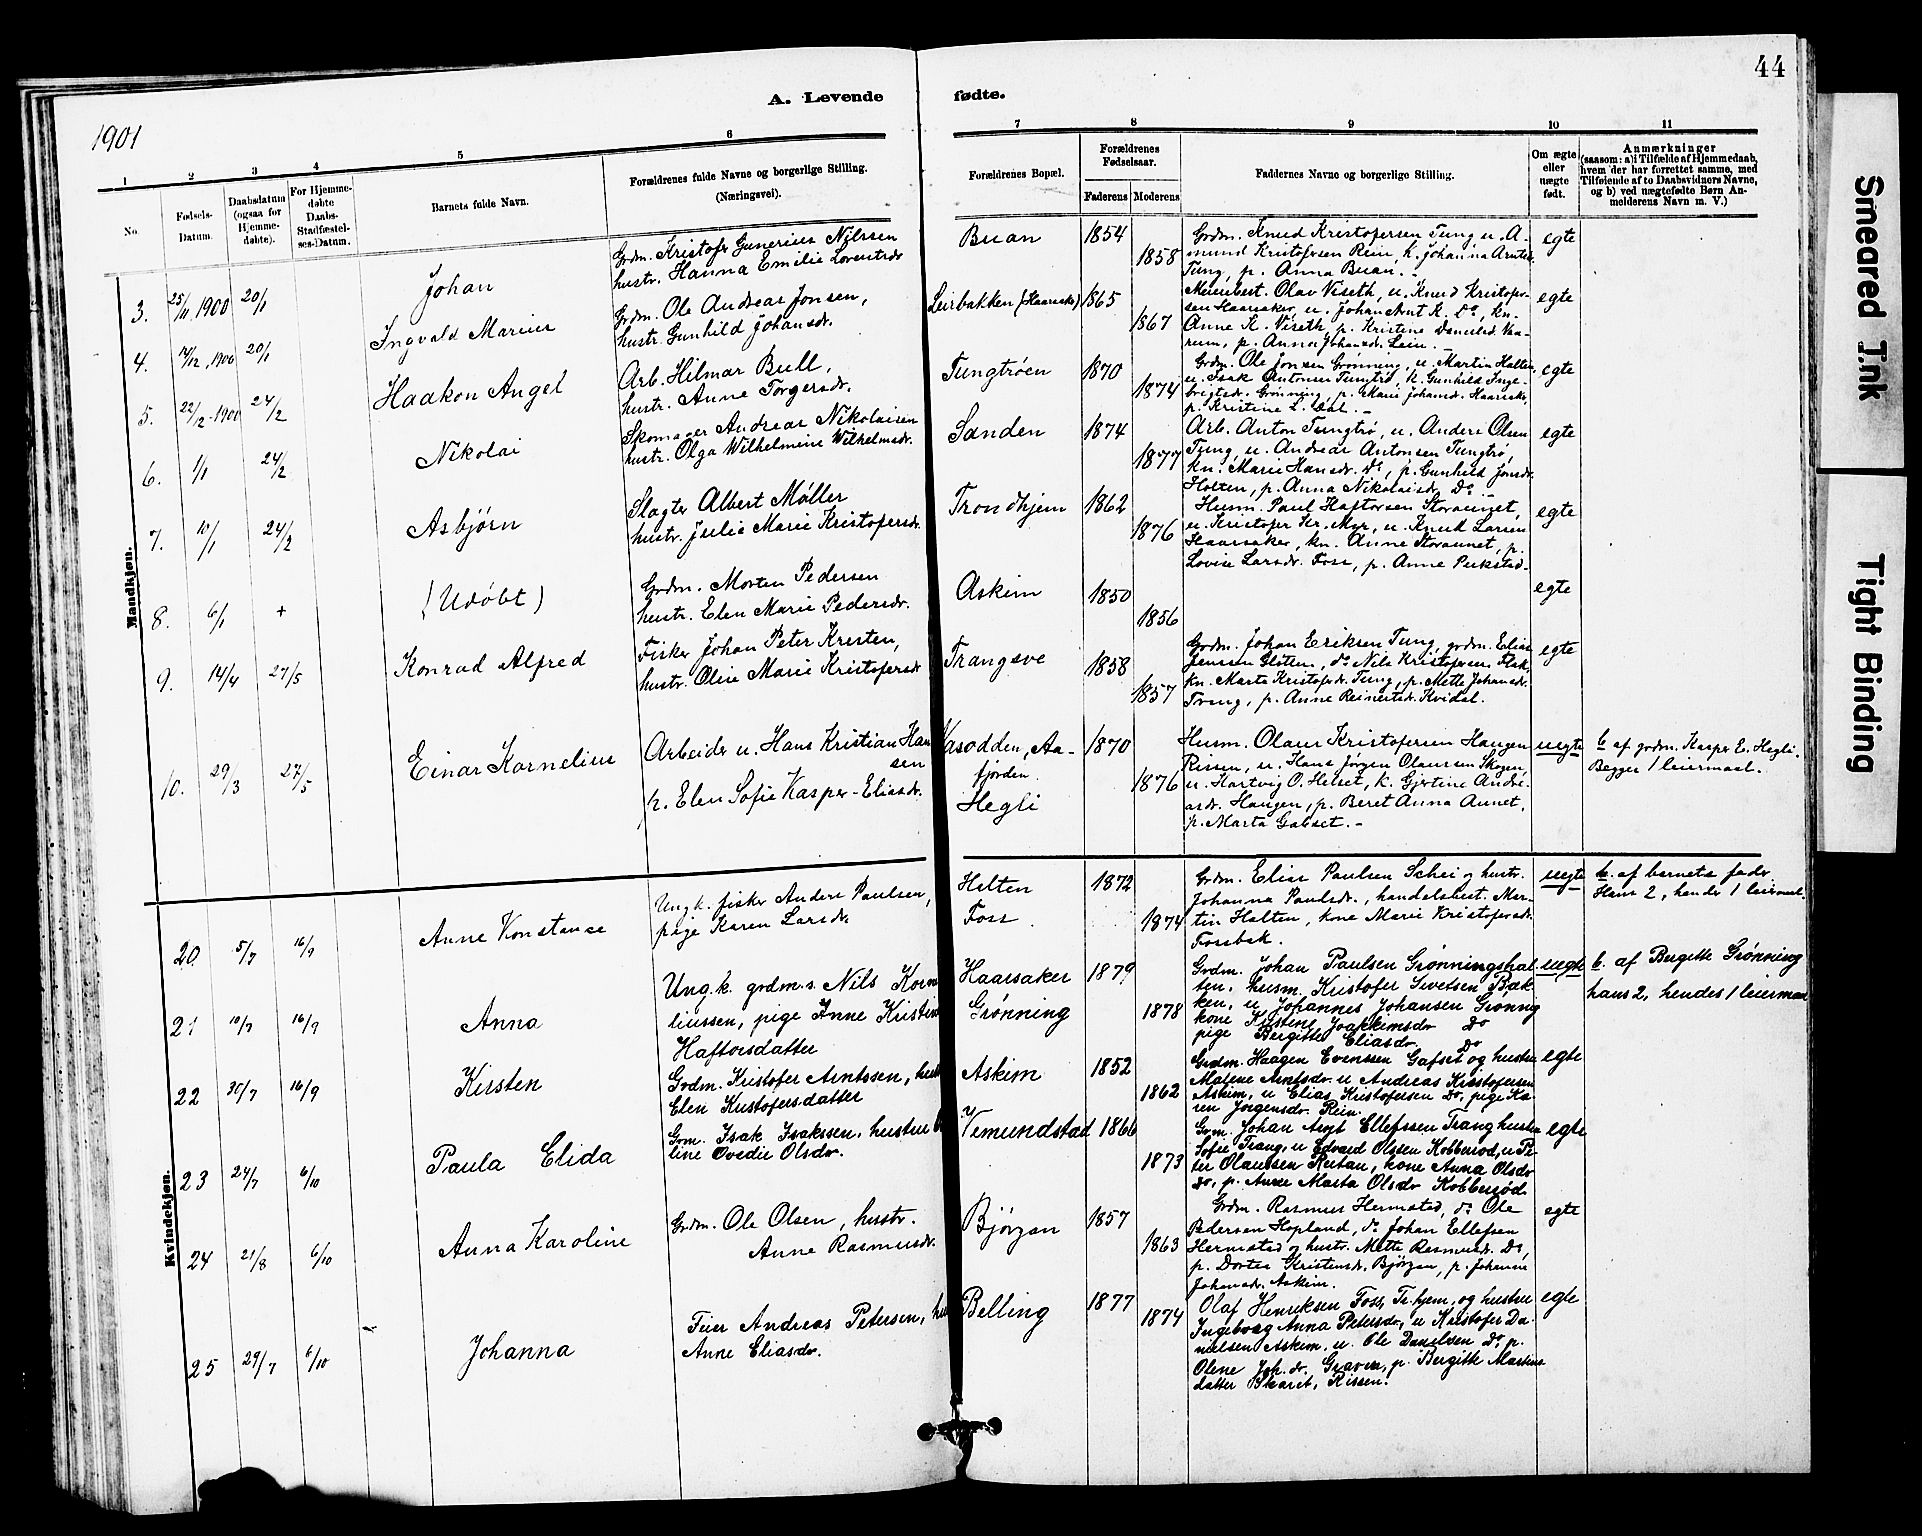 44
A. Levende fødte.
1901
1 2 3 4 5 6 7 8 9 10 11
No.
Fødsels-Datum.
Daabsdatum (ogsaa for Hjemme-døbte).
For Hjemme-døbte Daabs-Stadfæstel-ses-Datum.
Barnets fulde Navn.
Forældrenes fulde Navne og borgerlige Stilling. (Næringsvei).
Forældrenes Bopæl.
Forældrenes Fødselsaar.
Faderens Moderens
Faddernes Navne og borgerlige Stilling.
Om ægte eller uægte født.
Anmærkninger
(saasom: a) i Tilfælde af Hjemmedaab, hvem der har forrettet samme, med Tilføiende af to Daabsvidners Navne, og b) ved uægtefødte Børn Anmelderens Navn m. V.)
Mandkjøn.
3. 25/11 1900 20/1 Johan
Grdm. Kristofer Gunerius Nilssen
hustr. Hanna Emilie Lorentsdr
Buan 1854 1858
Grdm. Knud Kristofersen Tung u. A-
mund Kristofersen Rein, k. Johanna Arntsd.
Tung, p. Anna Buan. -
egte
4. 1900 20/1 Ingvald Marius
Grdm. Ole Andreas Jonsen,
hustr. Gunhild Johansdr.
Leirbakken (Haarsaker) 1865 1867
Meieribest. Olav Viseth, u. Knud Kristofer-
sen Haarsaker, u. Johan Arnt K. Do, kn.
Anne K. Viseth, p. Kristine Danielsd. Vaa-
rum, p. Anna Johansdr. Lein. -
egte
5. 22/12-1900 24/2 Haakon Angel
Arb. Hilmar Bull,
hustr. Anne Torgersdr.
Tungtrøen 1870 1874
Grdm. Ole Jonsen Grønning, u. Martin Halten
u. Isak Antonsen Tungtrø, k. Gunhild Inge-
brigtsdr. Grønning, p. Marie Johansdr. Haarsaker,
p. Kristine L. Dal. -
egte
6. 1/1 24/2 Nikolai
Skomager Andreas Nikolaisen
hustr. Olga Wilhelmine Wilhelmsdr.
Sanden 1874 1877
Arb. Anton Tungtrø, u. Anders Olsen
Tung, u. Andreas Antonsen Tungtrø,
kn. Marie Hansdr. Do, p. Gunhild Jonsdr.
Holten, p. Anna Nikolaisdr. Do. -
egte
7. 10/1 24/2 Asbjørn
Slagter Albert Møller
hustr. Julie Marie Kristofersdr.
Trondhjem 1862 1876
Husm. Paul Haftorsen Storaunet,
u. Kristofer Kr. Myr, u. Knud Larsen
Haarsaker, kn. Anne Storaunet, p.
Lovise Larsdr. Foss, p. Anne
egte
8. 6/1 + (Udøbt)
Grdm. Morten Pedersen
hustr. Elen Marie Pedersdr.
Askim 1850 1856
egte
9. 14/4 27/5 Konrad Alfred
Fisker Johan Peter Kresten,
hustr. Oline Marie Kristofersdr
Trangsve 1858 1857
Grdm. Johan Eriksen Tung, grdm. Elias
Jensen Gløten, do Nils Kristofersen Flak,
kn. Marta Kristofersdr. Tung, p. Mette Johansdr.
Tung, p. Anne Reinertsdr. Kvidal.
egte
10. 29/3 27/5 Einar Kornelius
Arbeider u. Hans Kristian Han
sen
p. Elen Sofie Kasper-Eliasdr.
Vasodden, Aa-
fjorden.
Hegli
1870 1876
Husm. Olaus Kristofersen Haugen
Rissen, u. Hans Jørgen Olaussen Skogen,
u. Hartvig O. Helset, k. Gjertine Andre-
asdr. Haugen, p. Beret Anna Aunet,
p. Marta Galset. -
uegte
b. af grdm. Kasper E. Hegli.
Begges 1 leiermaal.
Kvindekjøn.
20 5/7 16/9 Anne Konstanse
Ungk. fisker Anders Paulsen,
pige Karen Larsdr.
Halten
Foss
1872 1874
Grdm. Elias Paulsen Schei og hustr.
Johanna Paulsdr., handelsbest. Mar-
tin Halten, kone Marie Kristofersdr.
Fossbak.
uegte
b. af barnets fader
Hans 2, hendes 1 leiermaal.
21 10/7 16/9 Anna
Ung.k. grdm.s. Nils Korne
liussen, pige Anne Kristine
Haftorsdatter
Haarsaker
Grønning
1879 1878
Grdm. Johan Paulsen Grønningshal-
ten, husm. Kristofer Sivertsen Bak-
ken, u. Johannes Johansen Grønng
kone Kirstene Joakkimsdr do
pige Bergitte Eliasdr. Do
uegte
b. af Bergitte Grønning
hans 2, hendes 1 leiermaal
22 30/7 16/9 Kirsten
Grdm. Kristofer Arntssen, hust
Elen Kristofersdatter
Askim 1852 1862
Grdm. Haagen Evenssen Gafset og hustru
Malene Arntsdr. u Andreas Kristofersen
Askim, u Elias Kristofersen Do, pige Ka-
ren Jørgensdr. Rein.
egte
23 24/7 6/10 Paula Elida
Grm. Isak Isakssen, hustru
line Ovedie Olsdr.
Vemundstad 1866 1873
Grm. Johan Arnt Ellefssen Trang hustru
Sofie Trang, u Edvard Olssen Kobberød, u Pe-
ter Olaussen Reitan, kone Anna Olsdr
do, p. Anne Marta Olsdr Kobberød.
egte
24 21/8 6/10 Anna Karoline
Grdm. Ole Olsen, hustr.
Anne Rasmusdr.
Bjørgan 1857 1863
Grdm. Rasmus Hermstad, do Ole
Pedersen Hopland, do Johan Ellefsen
Hermstad og hustr. Mette Rasmusdr. Do,
p. Dortea Kristensdr. Bjørgan, p. Johanne
Johansdr. Askim.
egte
25 29/7 6/10 Johanna
Feier Andreas Petersen, hu
Anne Eliasdr.
Belling 1877 1874
Olaf Henriksen Foss, Tr.hjem, og hustru
Ingeborg Anna Petersdr, u Kristofer Da-
nielsen Askim, u. Ole Danielsen do, p.
Olene Joh.dr. Graven, p. Bergitte Martins
datter Skaret, Rissen.
egte
Smeared Ink
Tight Binding